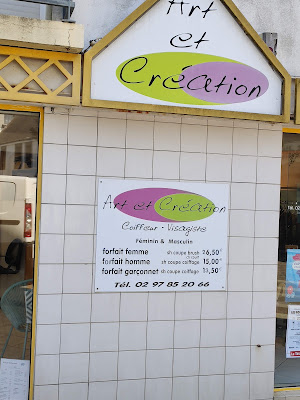 Art
et
Création
Art et Création
Coiffeur - Visagiste
Féminin & Masculin
forfait femme sh coupe brush 26,50€
forfait homme sh coupe coiffage 15,00€
forfait garconnet sh coupe coiffage 13,50€
Tél. 02 97 85 20 66